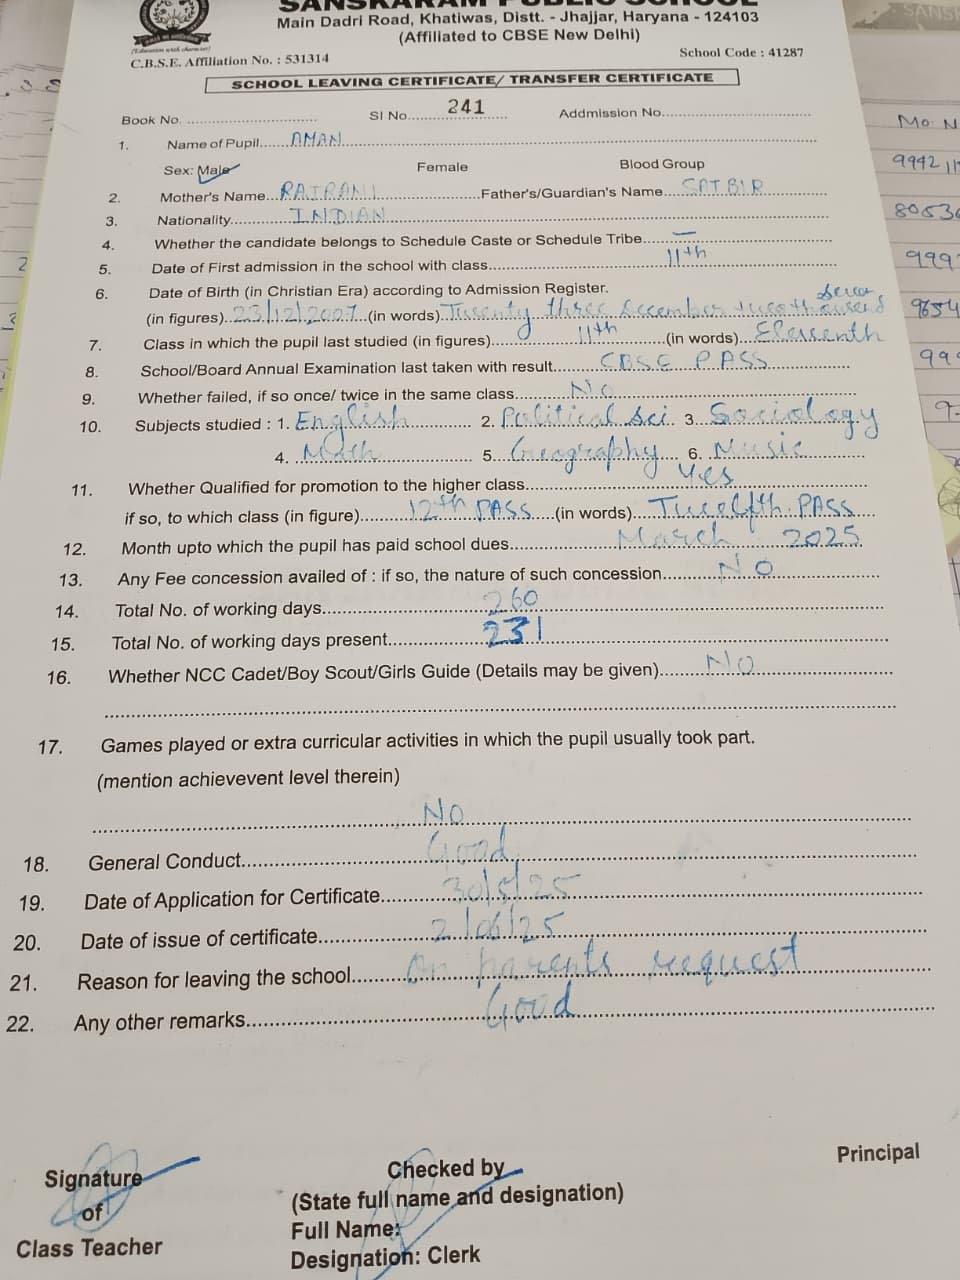 SANSKARAM PUBLIC SCHOOL
Main Dadri Road, Khatiwas, Distt. - Jhajjar, Haryana - 124103
(Affiliated to CBSE New Delhi)
(Education with character)
C.B.S.E. Affiliation No. : 531314 School Code : 41287
SCHOOL LEAVING CERTIFICATE/ TRANSFER CERTIFICATE
Book No. Sl No. 241 Addmission No.
1. Name of Pupil AMAN
Sex: Male Female Blood Group
2. Mother's Name RAJRANI Father's/Guardian's Name SATBIR
3. Nationality INDIAN
4. Whether the candidate belongs to Schedule Caste or Schedule Tribe —
5. Date of First admission in the school with class 11th
6. Date of Birth (in Christian Era) according to Admission Register.
(in figures) 23/12/2007 (in words) Twenty three December two thousand seven
7. Class in which the pupil last studied (in figures) 11th (in words) Eleventh
8. School/Board Annual Examination last taken with result CBSE PASS
9. Whether failed, if so once/ twice in the same class No
10. Subjects studied : 1. English 2. Political Sci. 3. Sociology
4. Math 5. Geography 6. Music
11. Whether Qualified for promotion to the higher class Yes
if so, to which class (in figure) 12th PASS (in words) Twelfth PASS
12. Month upto which the pupil has paid school dues March 2025
13. Any Fee concession availed of : if so, the nature of such concession No
14. Total No. of working days 260
15. Total No. of working days present 231
16. Whether NCC Cadet/Boy Scout/Girls Guide (Details may be given) No
17. Games played or extra curricular activities in which the pupil usually took part.
(mention achievevent level therein)
No
18. General Conduct Good
19. Date of Application for Certificate 30/5/25
20. Date of issue of certificate 2/06/25
21. Reason for leaving the school On parents request
22. Any other remarks Good
Signature
of
Class Teacher
Checked by
(State full name and designation)
Full Name:
Designation: Clerk
Principal
Mo. N